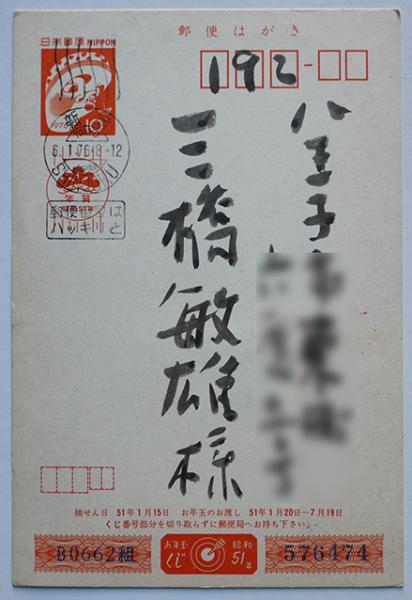 郵便はがき
日本郵便 NIPPON
10
192
八王子
三橋敏雄様
6.1.76 8-12
年賀
郵便番号は
ハッキリと
抽せん日 51年1月15日 お年玉のお渡し 51年1月20日－7月19日
くじ番号部分を切り取らずに郵便局へお持ち下さい。
B0662組
お年玉
くじ
昭和
51年
576474